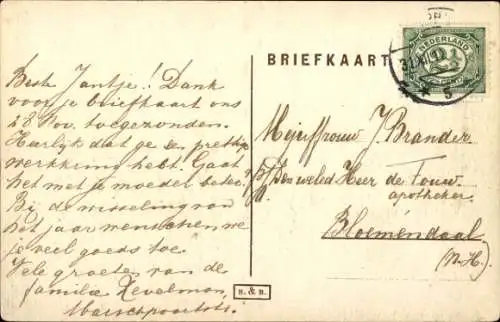 Beste Jantje! Dank
voor je briefkaart ons
28 Nov. toegezonden.
Heerlijk dat ge een prettige
werkkring hebt. Gaat
het met je moeder beter?
Bij de wisseling van
het jaar wenschen we
je veel goeds toe.
Vele groeten van de
familie
BRIEFKAART
NEDERLAND
Mejuffrouw J. Brander
p/a Den weled Heer de Fouw.
apotheker.
Bloemendaal
(N.H.)
B. & B.